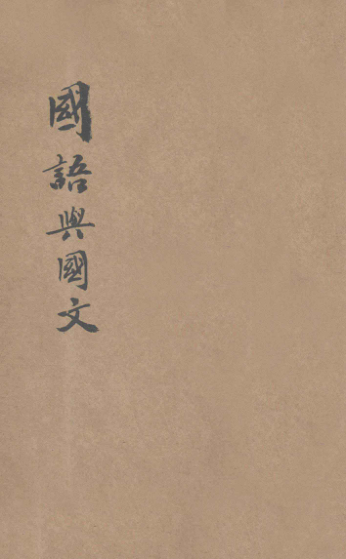 國語與國文